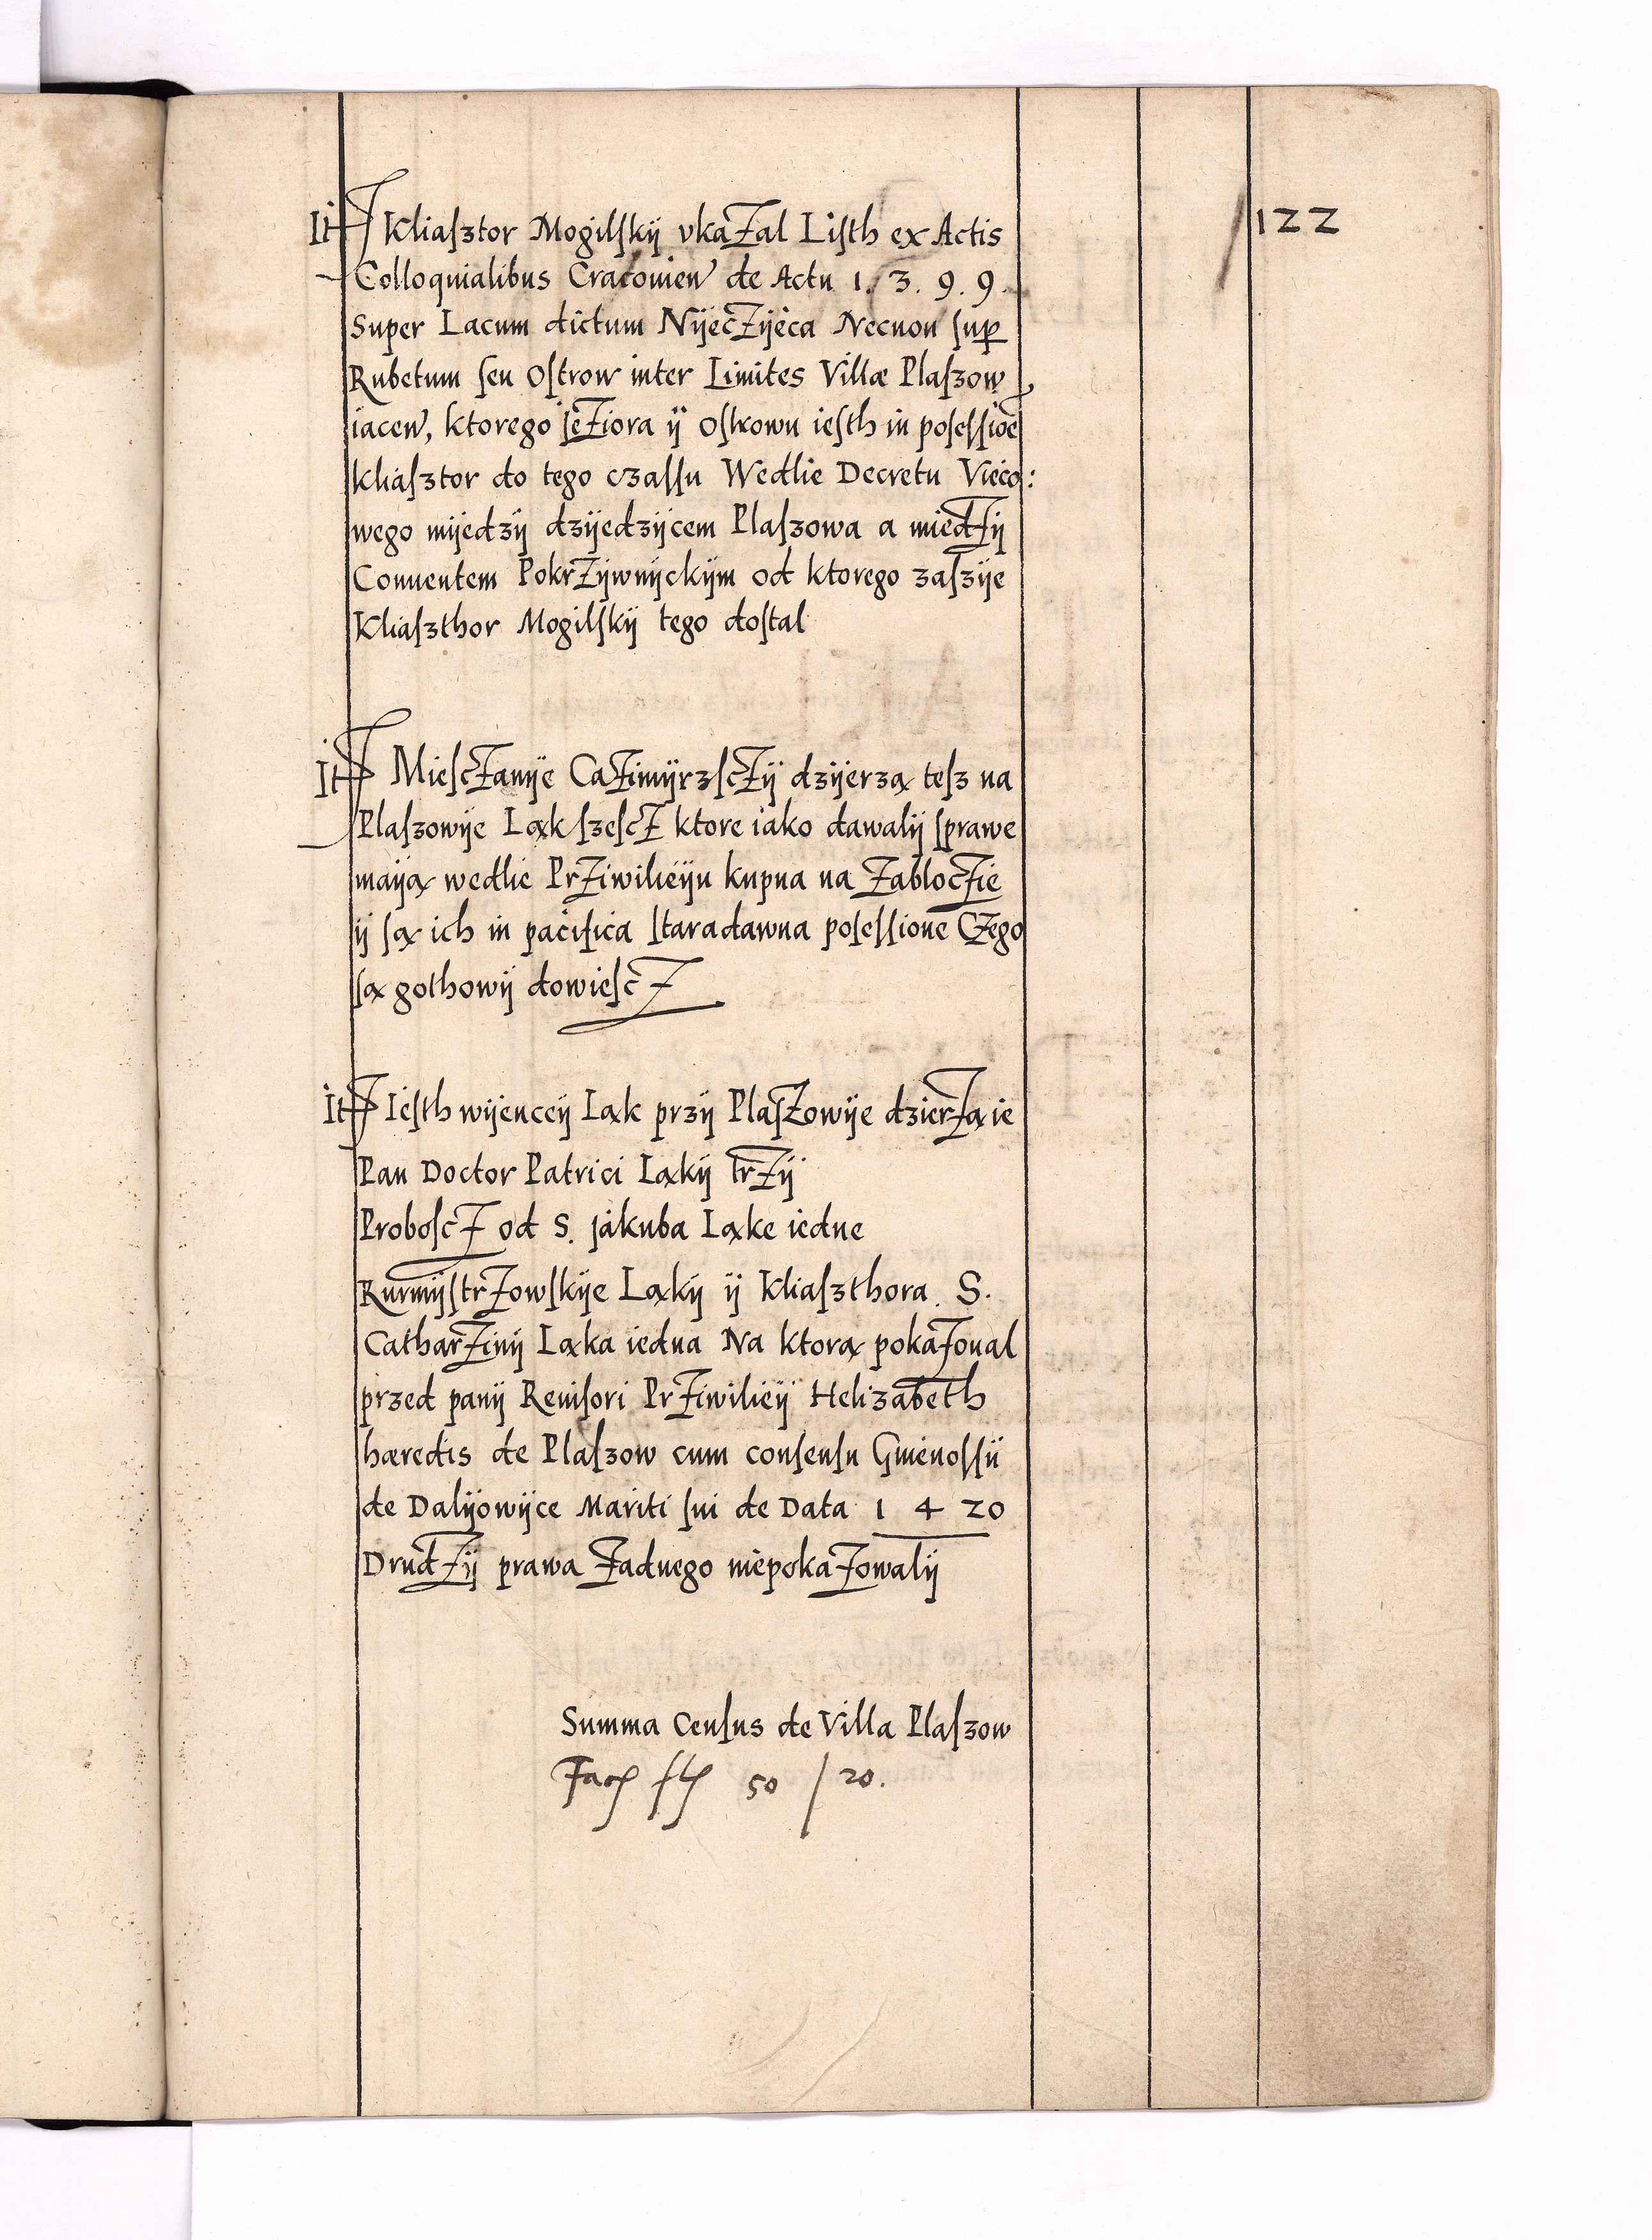 122
It Kliaſztor Mogilſkÿ vkaZal Liſth ex Actis
Colloquialibus Cracouien de Actu 1. 3. 9. 9.
Super Lacum dictum NÿecZÿeca Necnon ſup
Rubetum ſeu Oſtrow inter Limites Villæ Plaſzow
iacen, ktorego jeZiora ÿ Oſtrowu ieſth in poſeſſioe
kliaſztor do tego czaſſu Wedlie Decretu Vieco:
wego mÿedzÿ dzÿedzÿcem Plaſzowa a miedZÿ
Conuentem PokrZÿwnÿckÿm od ktorego zaſzÿe
Kliaſzthor Mogilſkÿ tego doſtal
It MieſcZanÿe CaZimÿrzſcZÿ dzÿerzą teſz na
Plaſzowÿe Ląk ſzeſcZ ktore iako dawalÿ ſprawe
maÿą wedlie PrZiwilieÿu kupna na ZablocZie
ÿ ſą ich in pacifica ſtaradawna poſeſſione CZego
ſą gothowÿ dowieſcZ
It Ieſth wÿenceÿ Ląk przÿ PlaſZowÿe dzierZą ie
Pan Doctor Patrici Ląkÿ trZÿ
ProboſcZ od S. jakuba Ląke iedne
RurmÿſtrZowſkÿe Ląkÿ ÿ Kliaſzthora S.
CatharZinÿ Ląka iedna Na ktorą pokaZoual
przed panÿ Reuiſori PrZiwilieÿ Helizabeth
hæredis de Plaſzow cum conſenſu Gnienoſſÿ
de Dalÿowÿce Mariti ſui de Data 1 4 20
DrudZÿ prawa Zadnego niepokaZowalÿ
Summa Cenſus de Villa Plaſzow
Fac fl 50 / 20.